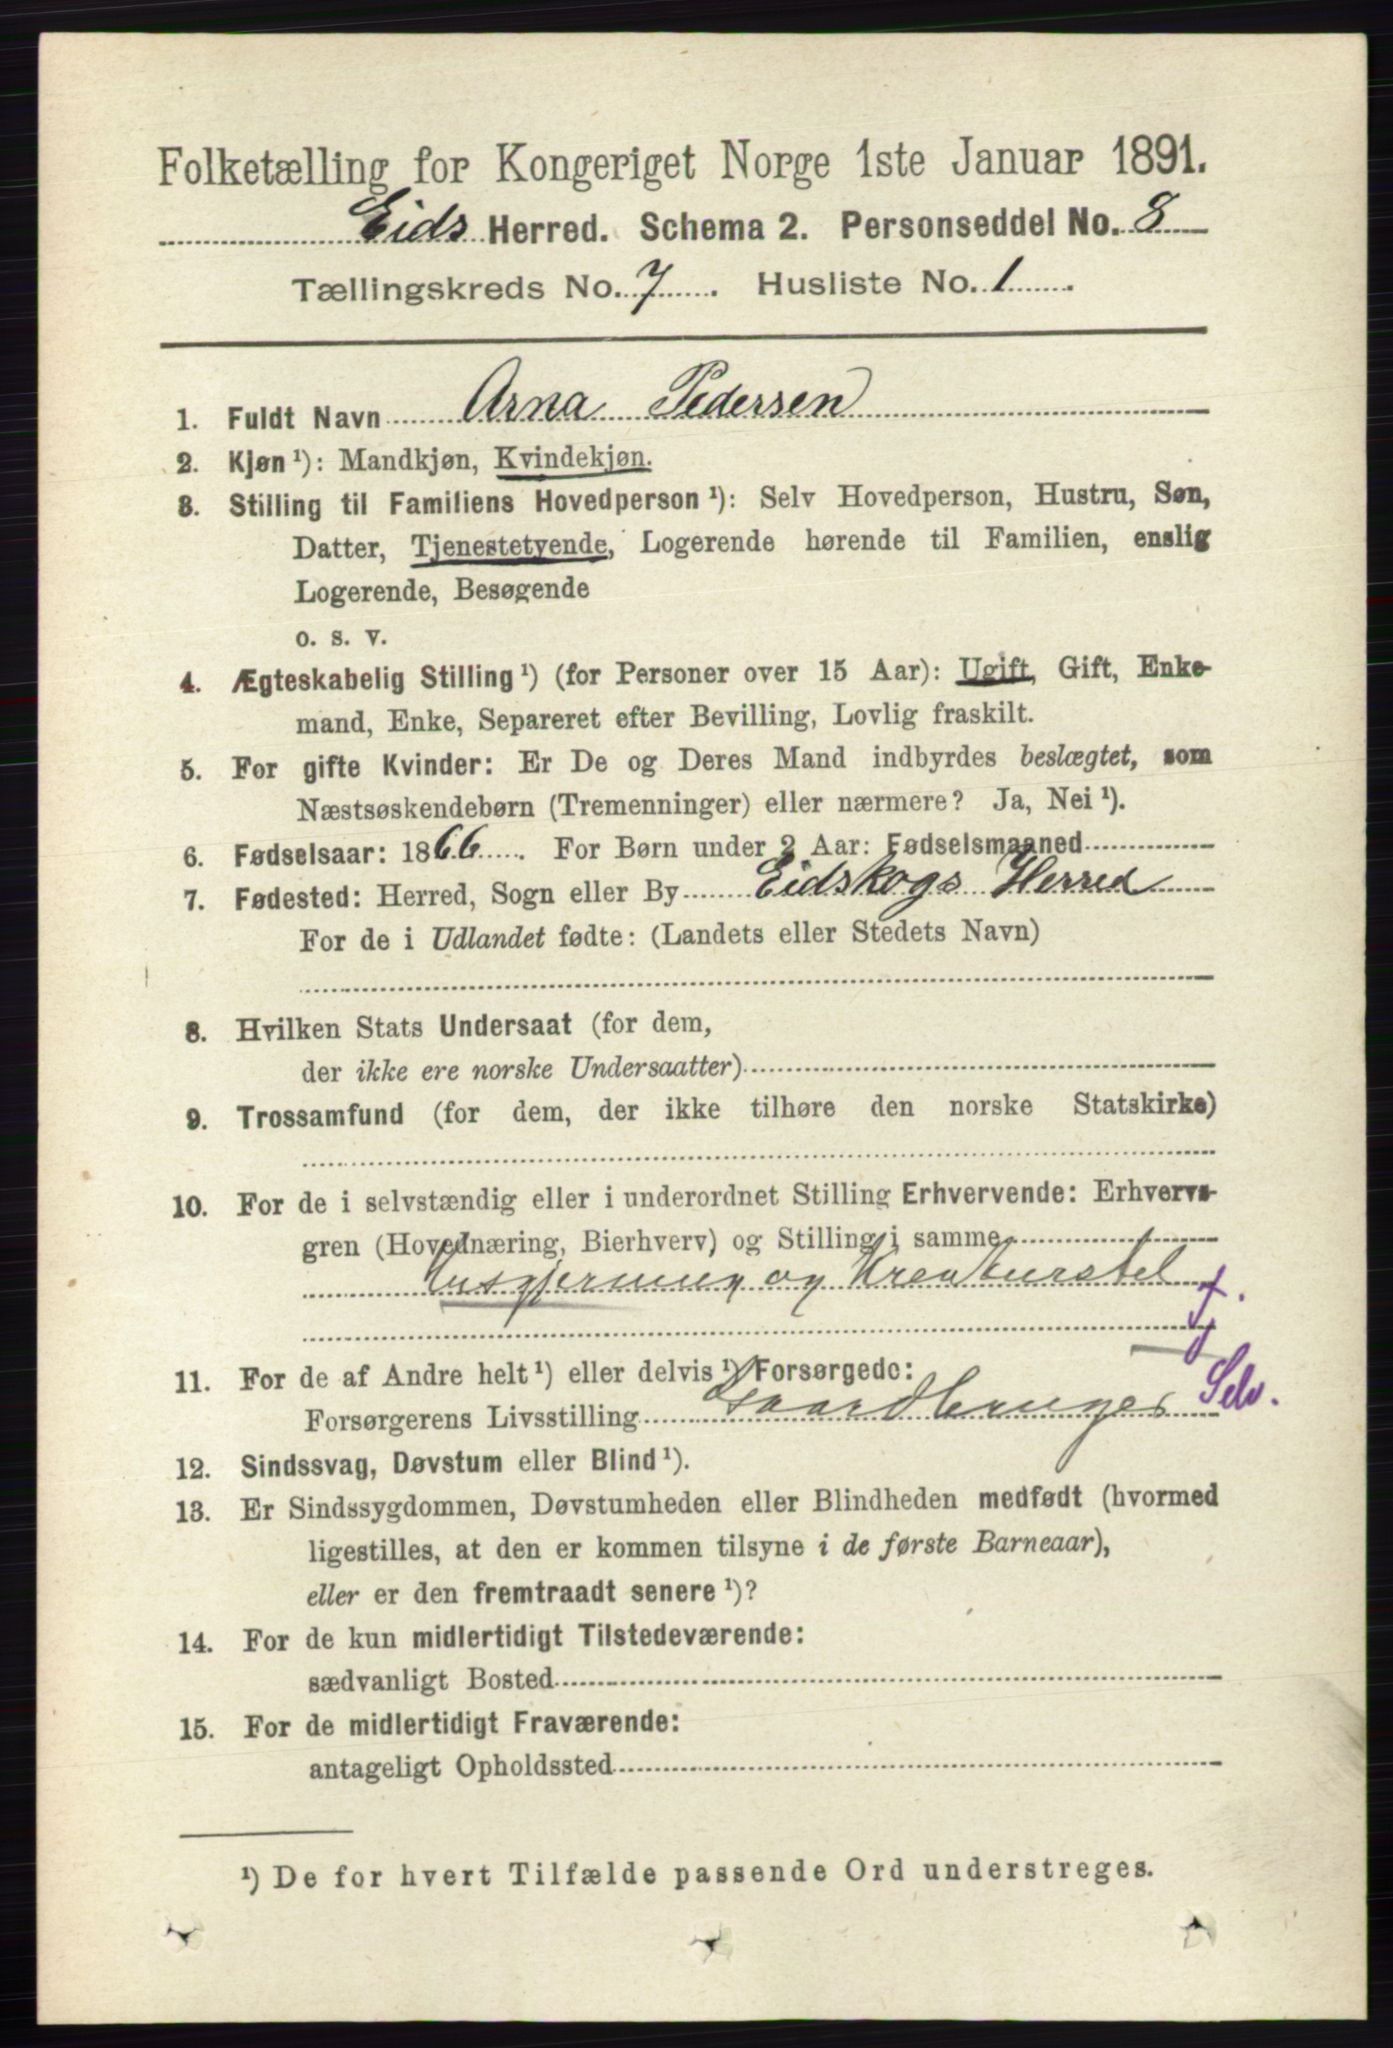 Folketælling for Kongeriget Norge 1ste Januar 1891.
Eids Herred. Schema 2. Personseddel No. 8
Tællingskreds No. 7. Husliste No. 1.
1. Fuldt Navn Arna Pedersen
2. Kjøn ¹): Mandkjøn, Kvindekjøn.
3. Stilling til Familiens Hovedperson ¹): Selv Hovedperson, Hustru, Søn,
Datter, Tjenestetyende, Logerende hørende til Familien, enslig
Logerende, Besøgende
o. s. v.
4. Ægteskabelig Stilling ¹) (for Personer over 15 Aar): Ugift, Gift, Enke-
mand, Enke, Separeret efter Bevilling, Lovlig fraskilt.
5. For gifte Kvinder: Er De og Deres Mand indbyrdes beslægtet, som
Næstsøskendebørn (Tremenninger) eller nærmere? Ja, Nei ¹).
6. Fødselsaar: 1866. For Børn under 2 Aar: Fødselsmaaned
7. Fødested: Herred, Sogn eller By Eidskogs Herred
For de i Udlandet fødte: (Landets eller Stedets Navn)
8. Hvilken Stats Undersaat (for dem,
der ikke ere norske Undersaatter)
9. Trossamfund (for dem, der ikke tilhøre den norske Statskirke)
10. For de i selvstændig eller i underordnet Stilling Erhvervende: Erhvervs-
gren (Hovednæring, Bierhverv) og Stilling i samme
Husgjerning og Kreaturstel
tj.
11. For de af Andre helt ¹) eller delvis ¹) Forsørgede:
Forsørgerens Livsstilling Gaardbruger Selv.
12. Sindssvag, Døvstum eller Blind ¹).
13. Er Sindssygdommen, Døvstumheden eller Blindheden medfødt (hvormed
ligestilles, at den er kommen tilsyne i de første Barneaar),
eller er den fremtraadt senere ¹)?
14. For de kun midlertidigt Tilstedeværende:
sædvanligt Bosted
15. For de midlertidigt Fraværende:
antageligt Opholdssted
¹) De for hvert Tilfælde passende Ord understreges.